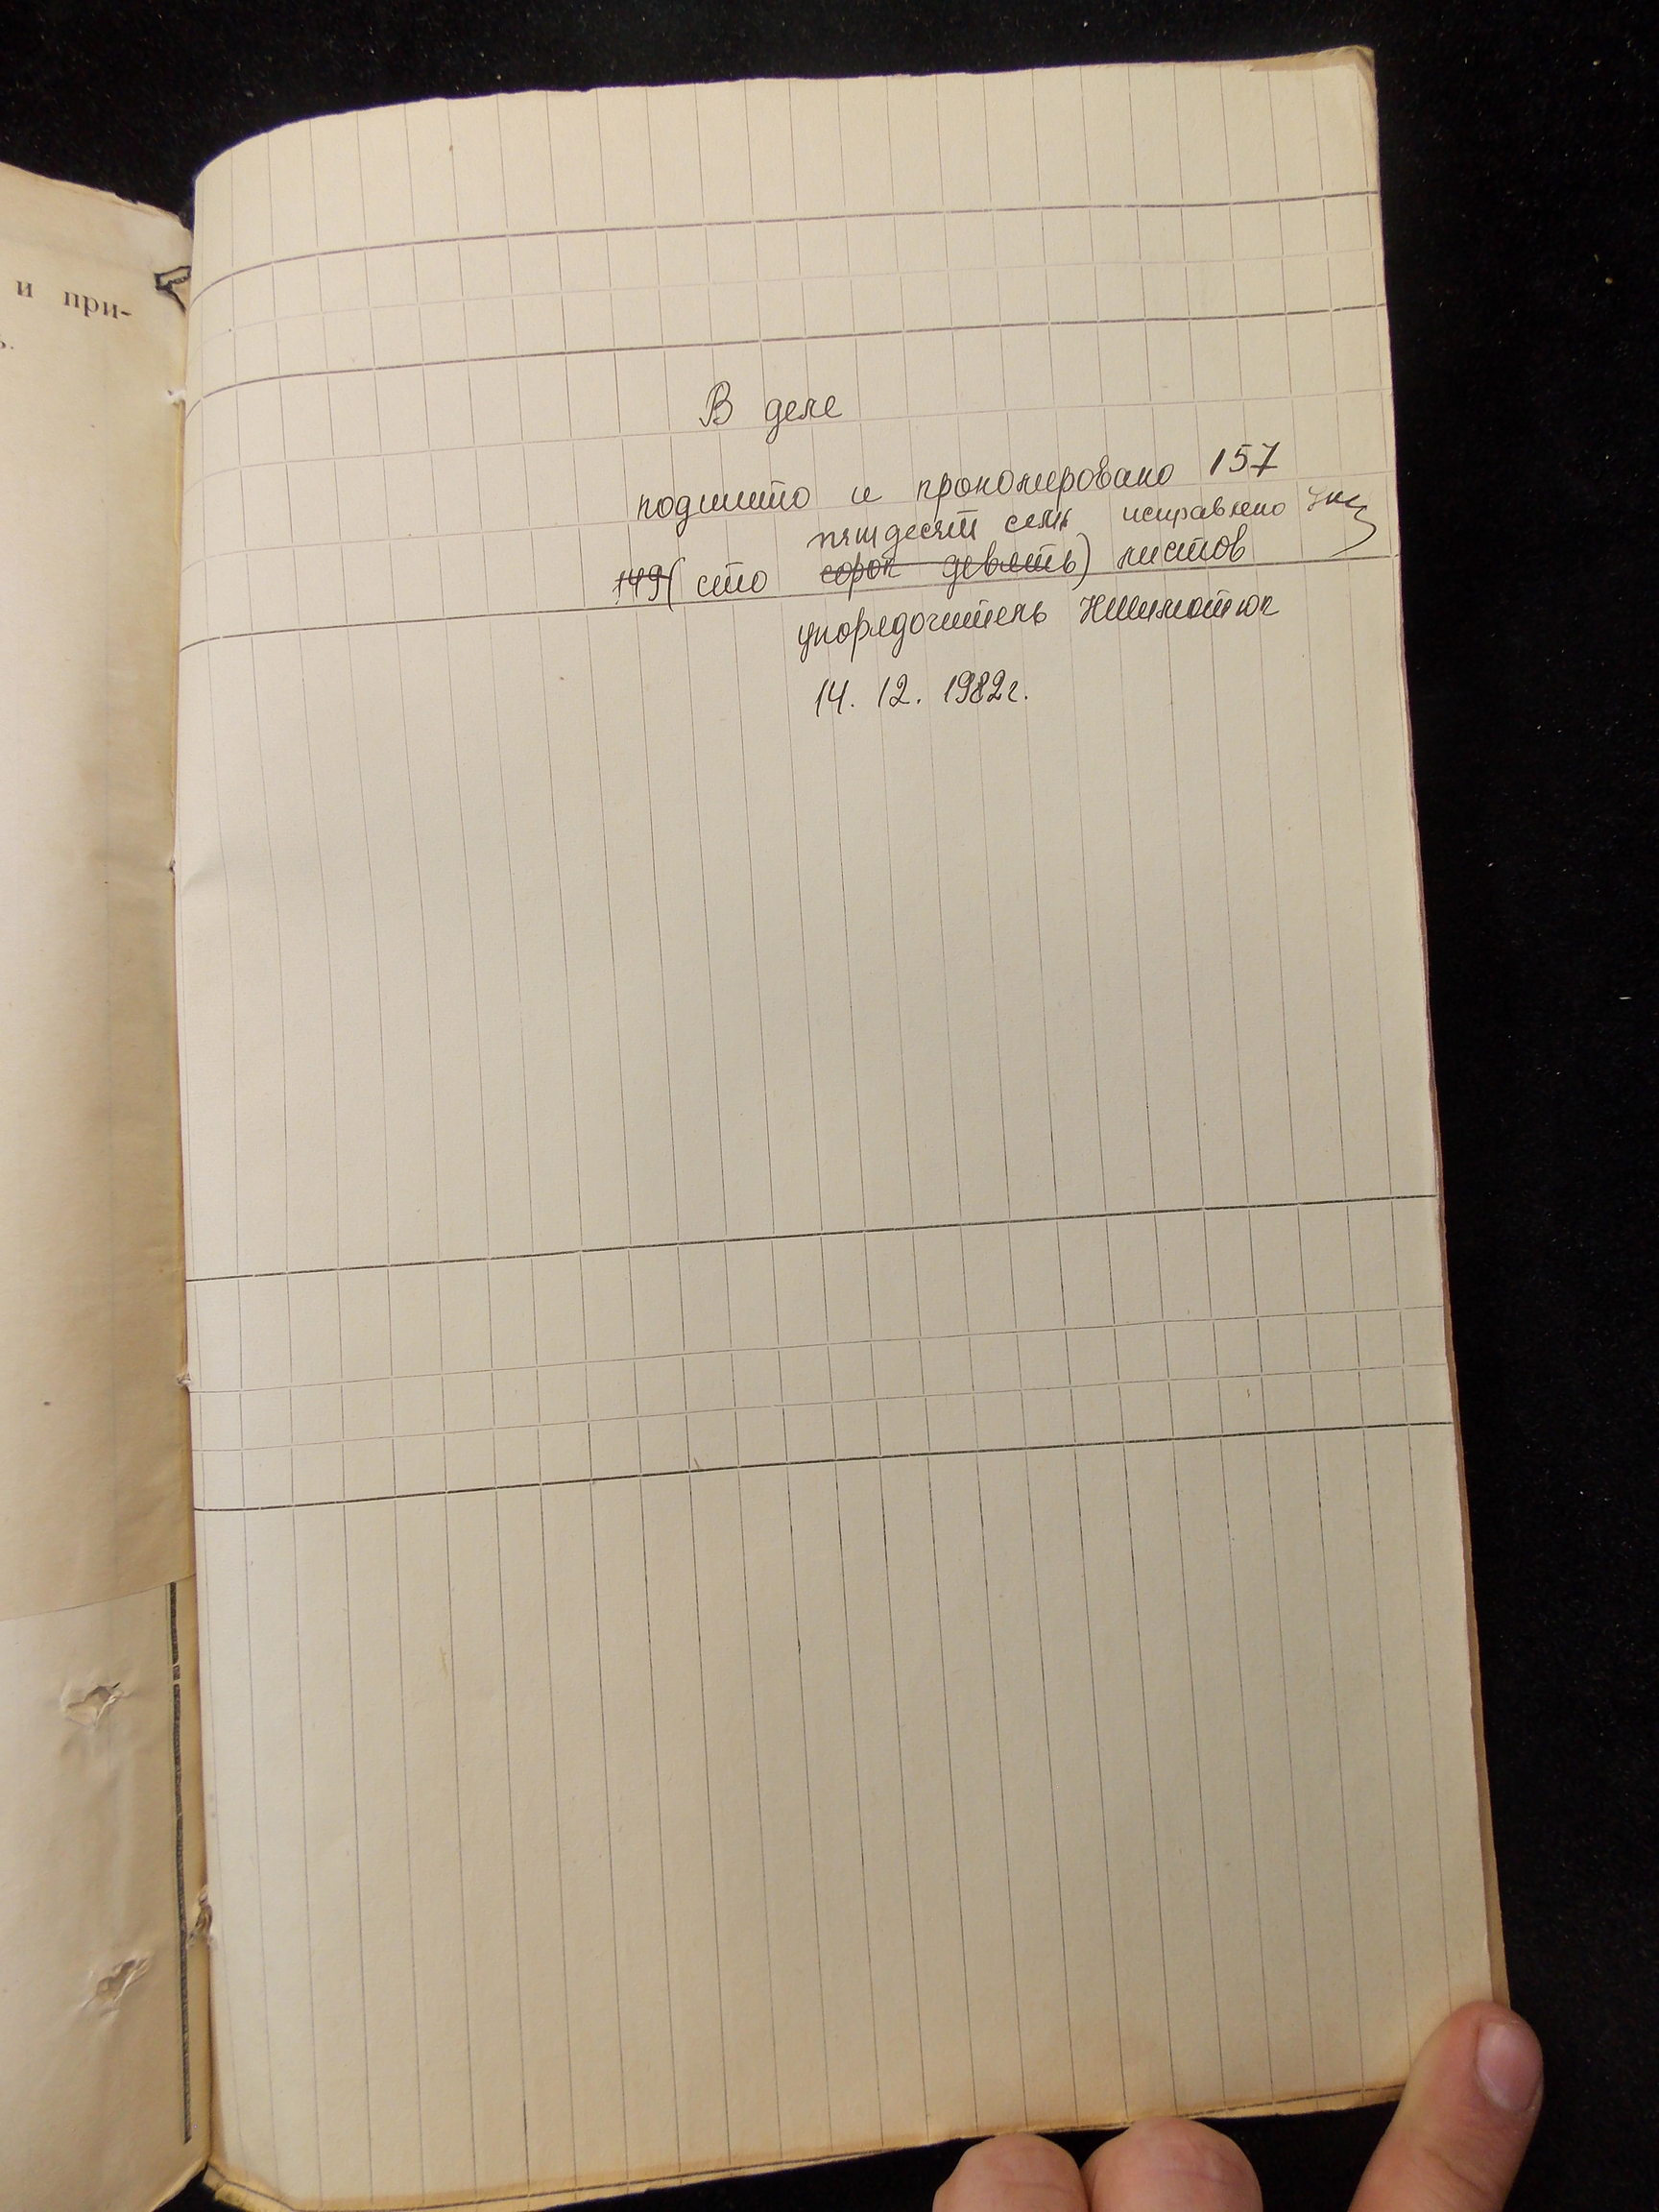 и при-
ь.
В деле
подшито и прономировано 157
пятдесят семь исправлено
149 (сто сорок девять) листов
упорядочитель
14. 12. 1982г.